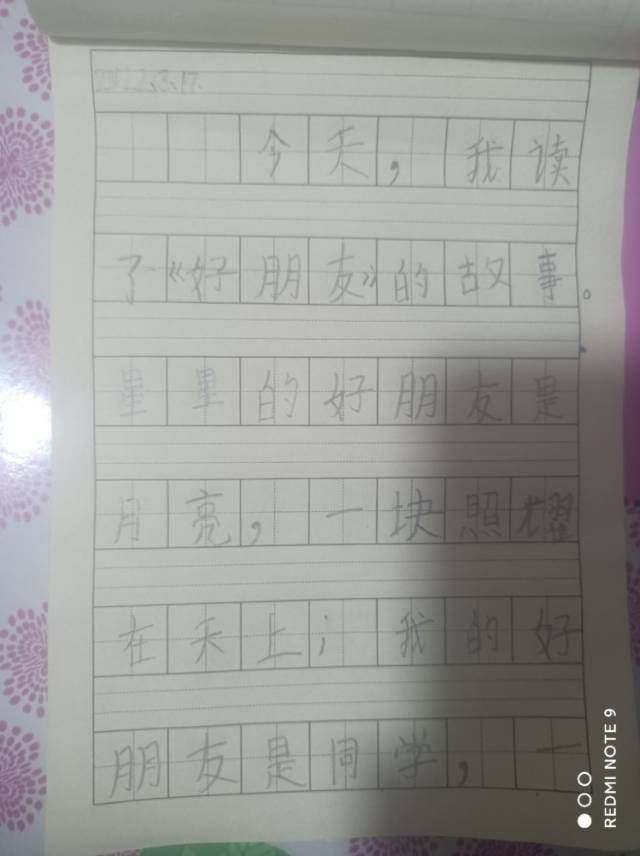 2022.3.17.
今天，我读
了《好朋友》的故事。
星星的好朋友是
月亮，一块照耀
在天上；我的好
朋友是同学，一
REDMI NOTE 9